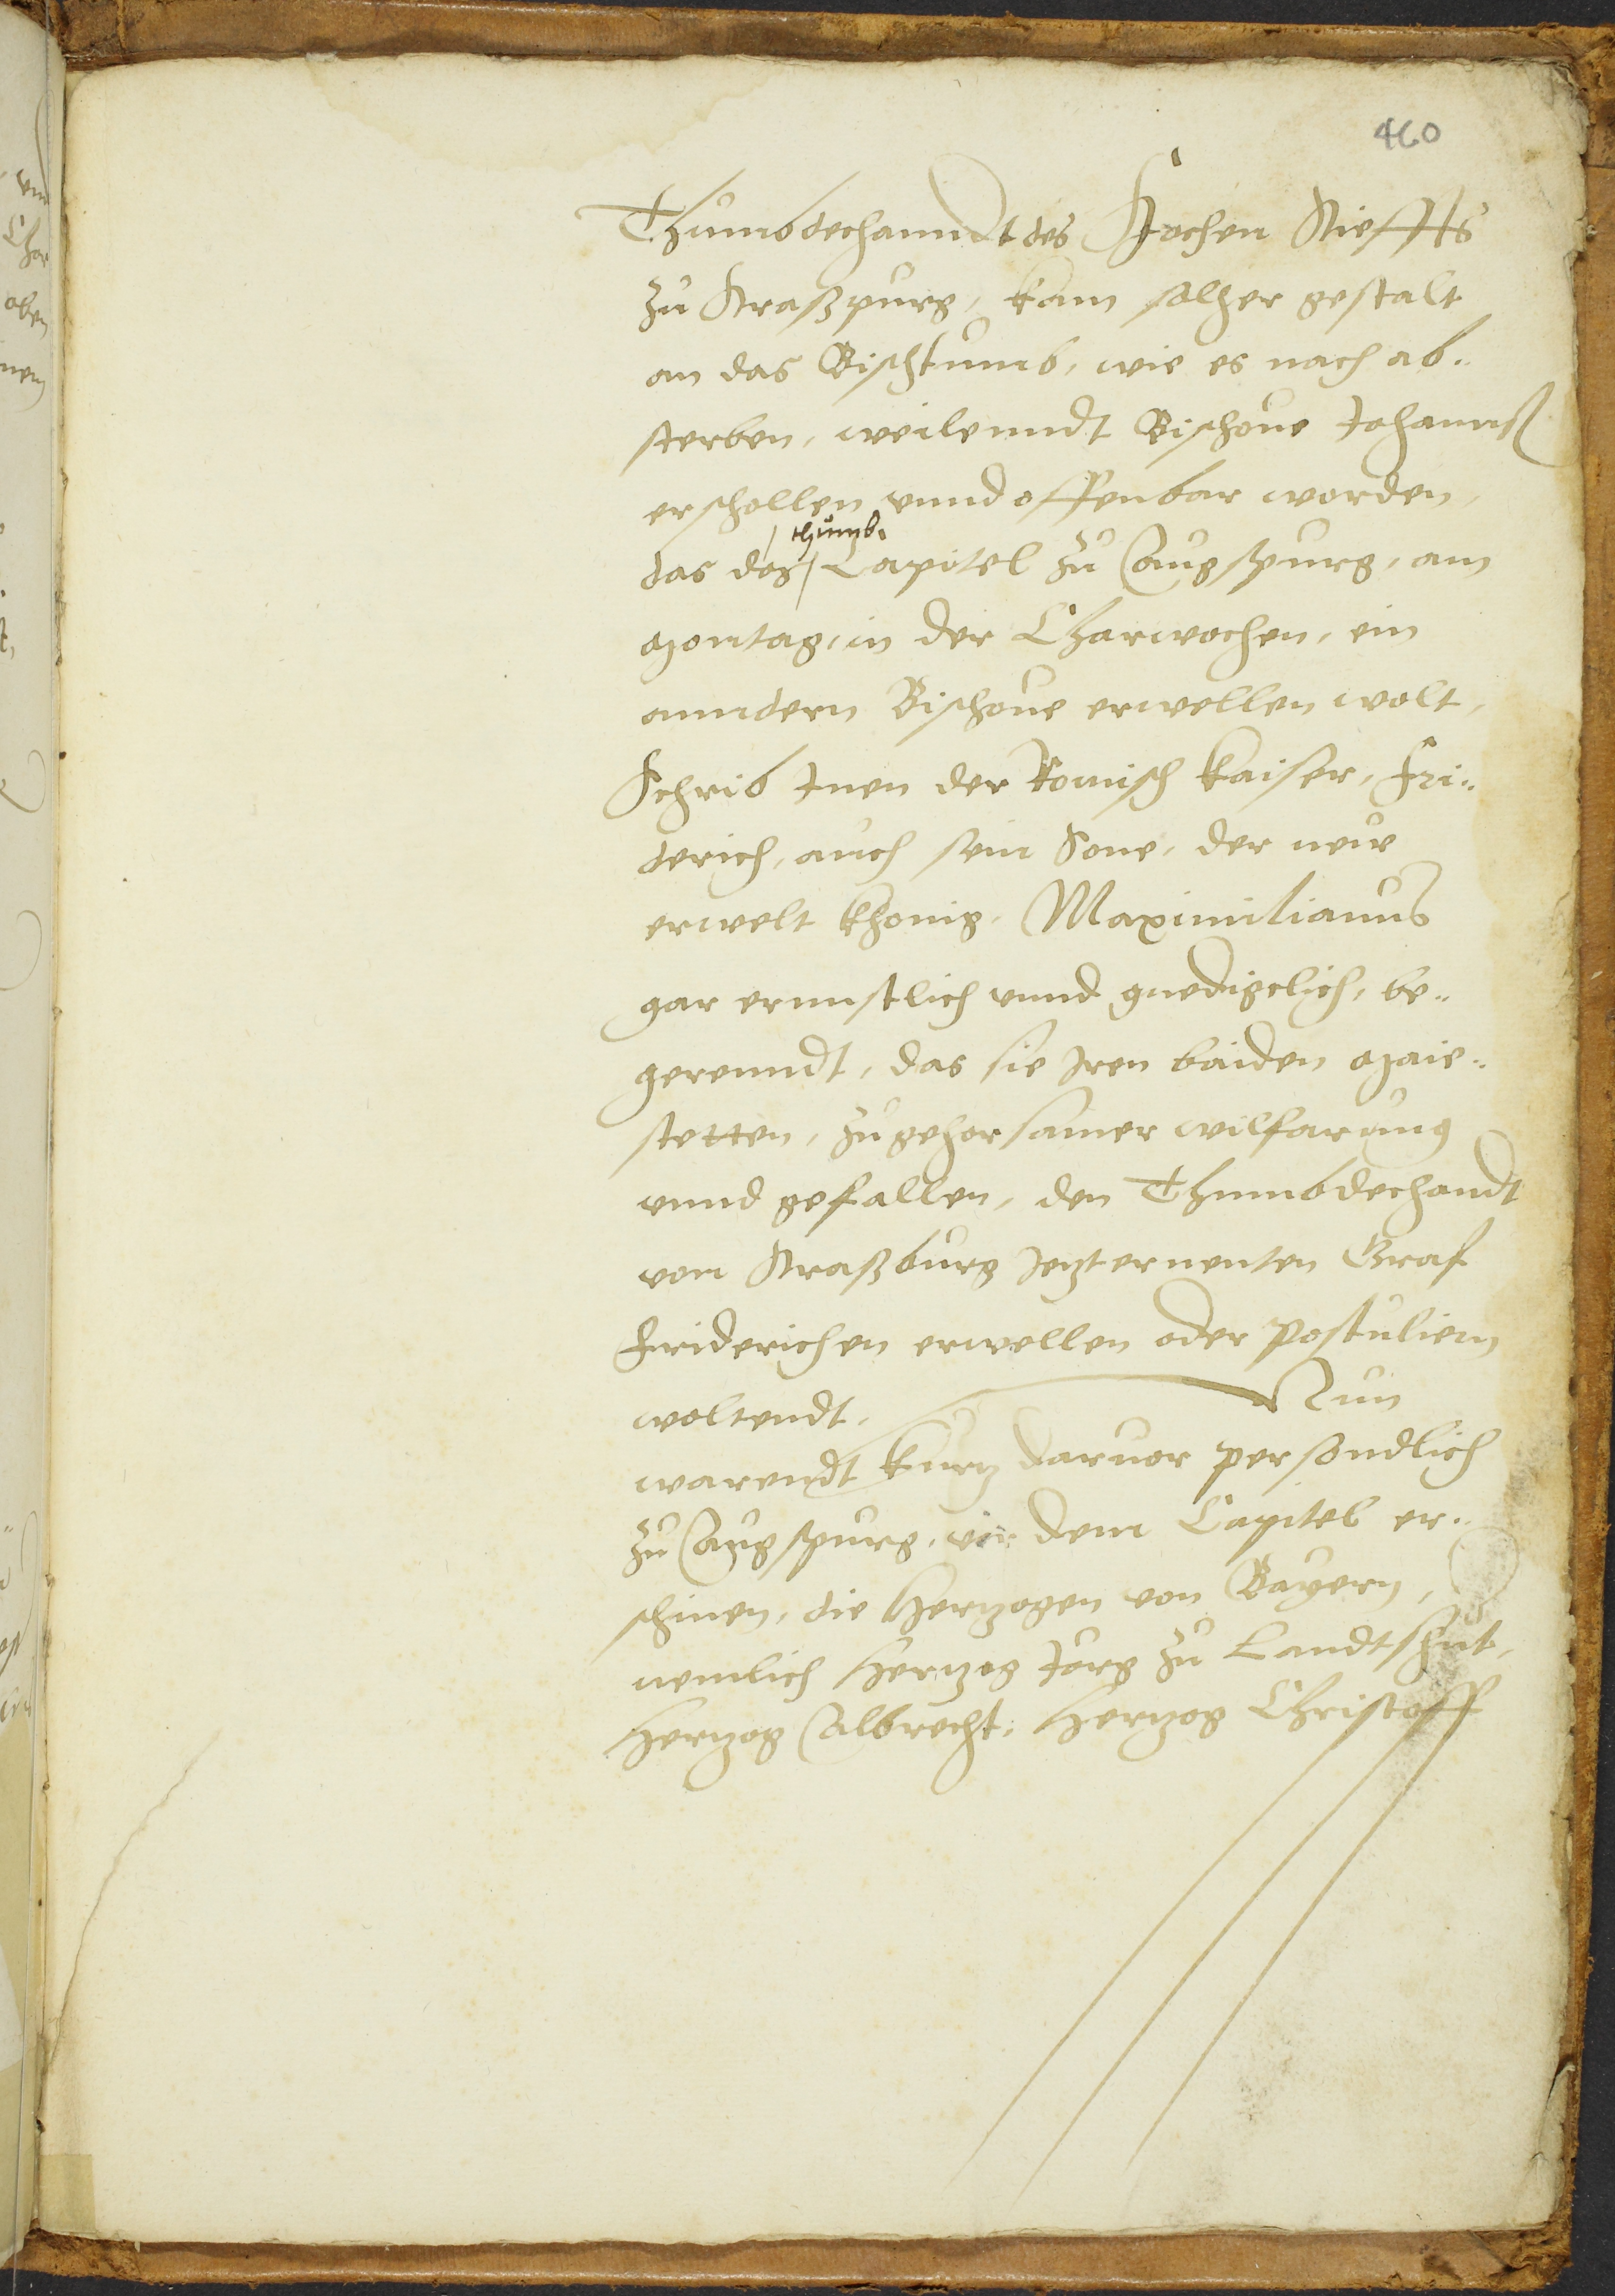 460
Thumbdechanndt des Hochen Stieffts
zu Straßpurg, kam solher gestalt
an das Bischtumb, wie es nach ab„
sterben, weilenndt Bischoue Johannß
erschollen vnnd offenbar worden,
thumb.
das das Capitel zu Augspurg, am
Montag, in der Charwochen, ein
anndern Bischoue erwellen wolt,
Schrib Inen der Romisch Kaiser, Fri„
derich, auch sein Sone, der new
erwelt Khonig, Maximilianus
gar ernnstlich vnnd gnedigclich, be„
gerenndt, das sie Iren baiden Maie„
stetten, zu gehorsamer wilfarung
vnnd gefallen, den Thumbdechandt
von Straßburg Jetzternenten Graf
Friderichen erwellen oder Postuliern
woltendt. Nun
warendt kurtz daruor persondlich
zu Augspurg, vor dem Capitel er„
schinen, die Hertzogen von Bayern,
nemlich Hertzog Jörg zu Landtshut,
Hertzog Albrecht, Hertzog Christoff